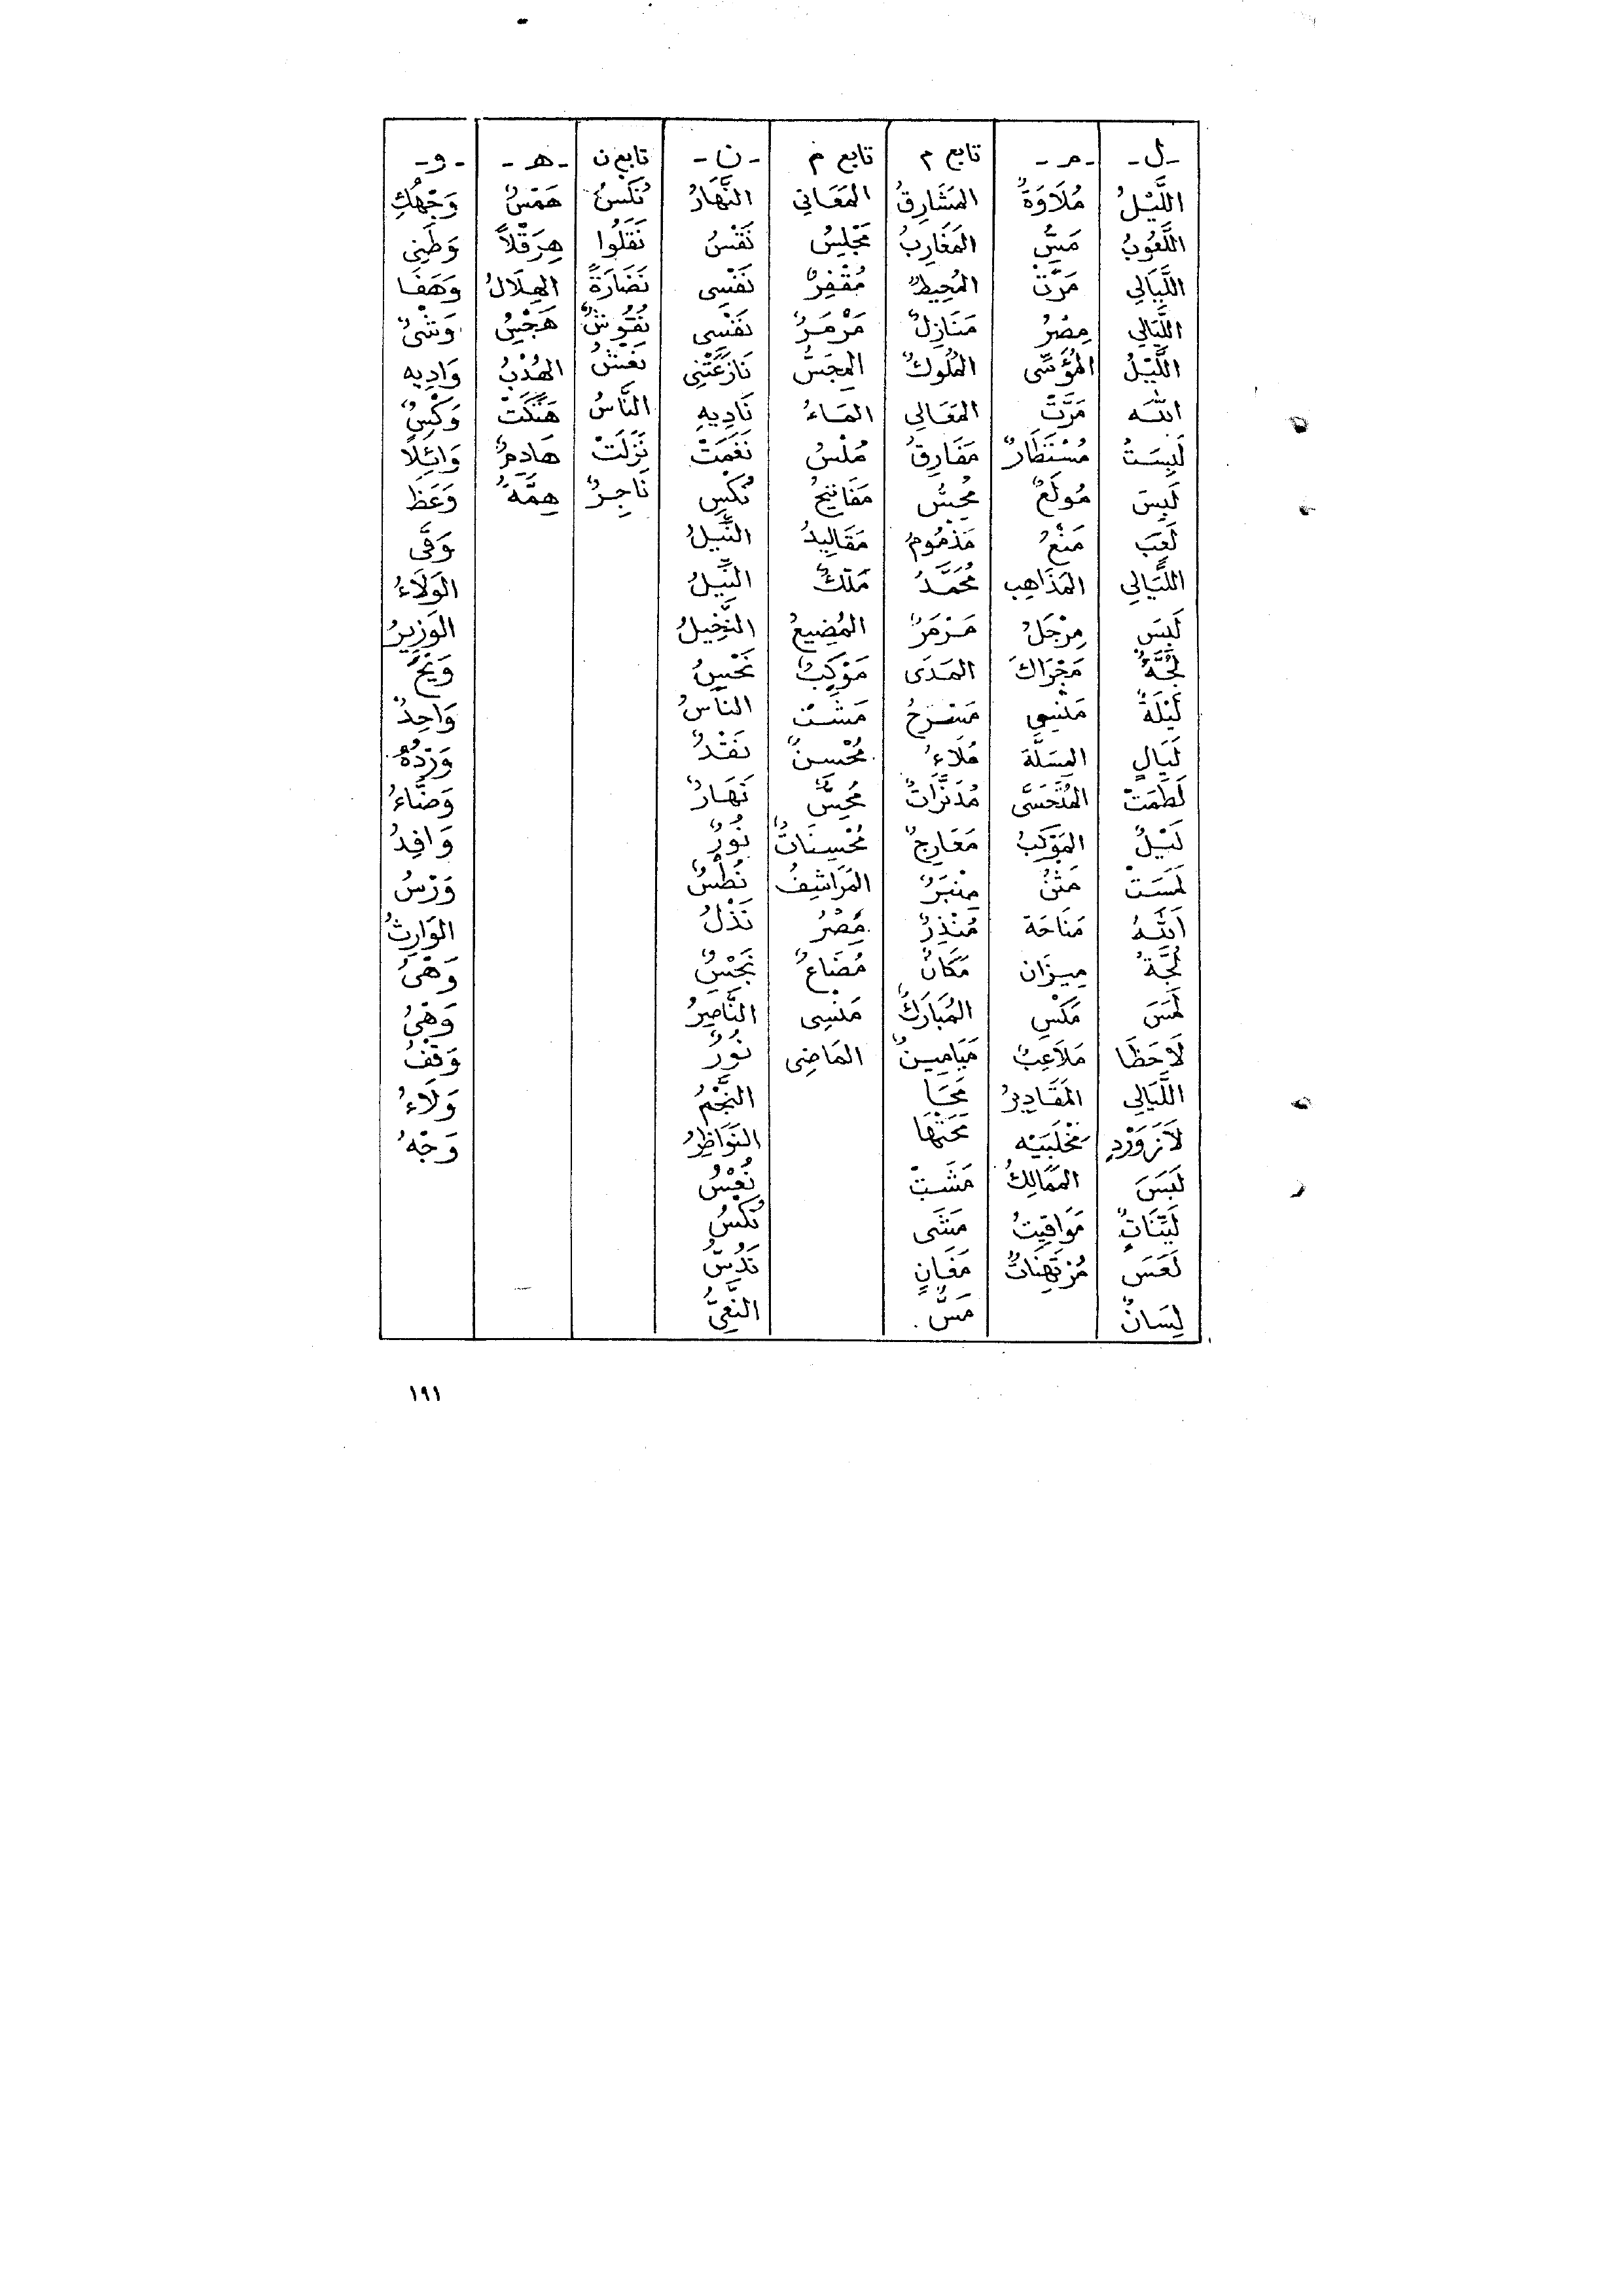 -ل- -م- تابع م تابع م -ن- تابع ن -ه- -و-
اللَّيْلُ مُلَاوَةٌ المَشَارِقُ المَعَاني النَّهَارُ نُكْسٌ هَمْسٌ وَجْهُكِ
اللَّعُوبُ مَسٌّ المَغَارِبُ مَجْلِسٌ نَفْسٌ نَقَلُوا هِرَقْلاً وَطَنِى
اللَّيَالِي مَرَّتْ المُحِيطُ مُقْفِرٌ نَفْسِى نَضَارَةً الهِلَالُ وَهَفَا
اللَّيَالِي مِصْرُ مَنَازِلٌ مَرْمَرٌ نَفْسِى نُقُوشٌ وَشْىٌ
اللَّيْلُ المُؤَسَّى المُلُوكُ المِجَسُّ نَازَعَتْنِي نَعْشٌ الهُدْبُ وَادِيهِ
الله مَرَّتْ المَعَالِي المَاءُ نَادِيهِ النَّاسُ هَتَكَتْ وَكْسٌ
لَبِسَتْ مُسْتَطَارٌ مَفَارِقُ مُلْسُ نَغَمَتْ نَزَلَتْ هَادِمٌ وَائِلًا
لَبِسَ مُولَعٌ مُحِسٌّ مَفَاتِيحُ نُكْسِ نَاجِرٌ هِمَّةٌ وَعَظَ
لَعِبَ مَنْعُ مَذْمُومٌ مَقَالِيدُ النِّيلُ وَفَّى
اللَّيَالِي المَذَاهِب مُحَمَّدٌ مَلَكٌ النِّيلُ الوَلَاءُ
لَبِسَ مِرْجَلٌ مَرْمَرٌ المُضِيعُ النَّخِيلُ الوَزِيرُ
لُجَّةٌ مَجْرَاكَ المَدَى مَوْكِبٌ نَحْسٌ وَيْحَ
لَيْلَةٌ مَنْسِي مَسْرَحُ مَشَتْ النَّاسُ وَاحِدٌ
لَيَالٍ المِسَلَّةَ مُلَاءُ مُحْسِنٌ نَقْدٌ وَرْدُهُ
لَطَمَتْ المُتَحَسَّى مُدَنَّرَاتٌ مُحِسٌّ نَهَارٌ وَضَّاءُ
لَيْلٌ المَوْكِبُ مَعَارِجٌ مُحْسِنَاتٌ نُورٌ وَافِدُ
لَمَسَتْ مَتْنُ مِنْبَرٌ المَرَاشِفُ نُطْسٌ وَرْسُ
اللَّهُ مَنَاحَة مُنْذِرٌ مِصْرُ نَذْلُ الوَارِثُ
لُجَّةٌ مِيزَان مَكَانٌ مُضَاعٌ نَجْسٌ وَهْىَ
لَمَسَ مَكْسِ المُبَارَكُ مَنْسِى النَّاصِرُ وَهْىُ
لَاحَظَا مَلَاعِبٌ مَيَامِينٌ المَاضِى نُورٌ وَقْفٌ
اللَّيَالِي المَقَادِيرُ مَحَا النَّجْمُ وَلَاءُ
لَازَوَرْدٍ مِخْلَبَيْهِ مَحَتْهَا النَّوَاظِرُ وَجْهُ
لَبِسَ المَمَالِكُ مَشَتْ نُعْسُ
لَبِنَاتٍ مَوَاقِيتُ مَشَى نُكْسُ
لَعَسَ مُرْتَهَنَاتٌ مَغَانٍ نَدُسٌّ
لِسَانٌ مَسٌّ النَّعِيُّ
١٩١